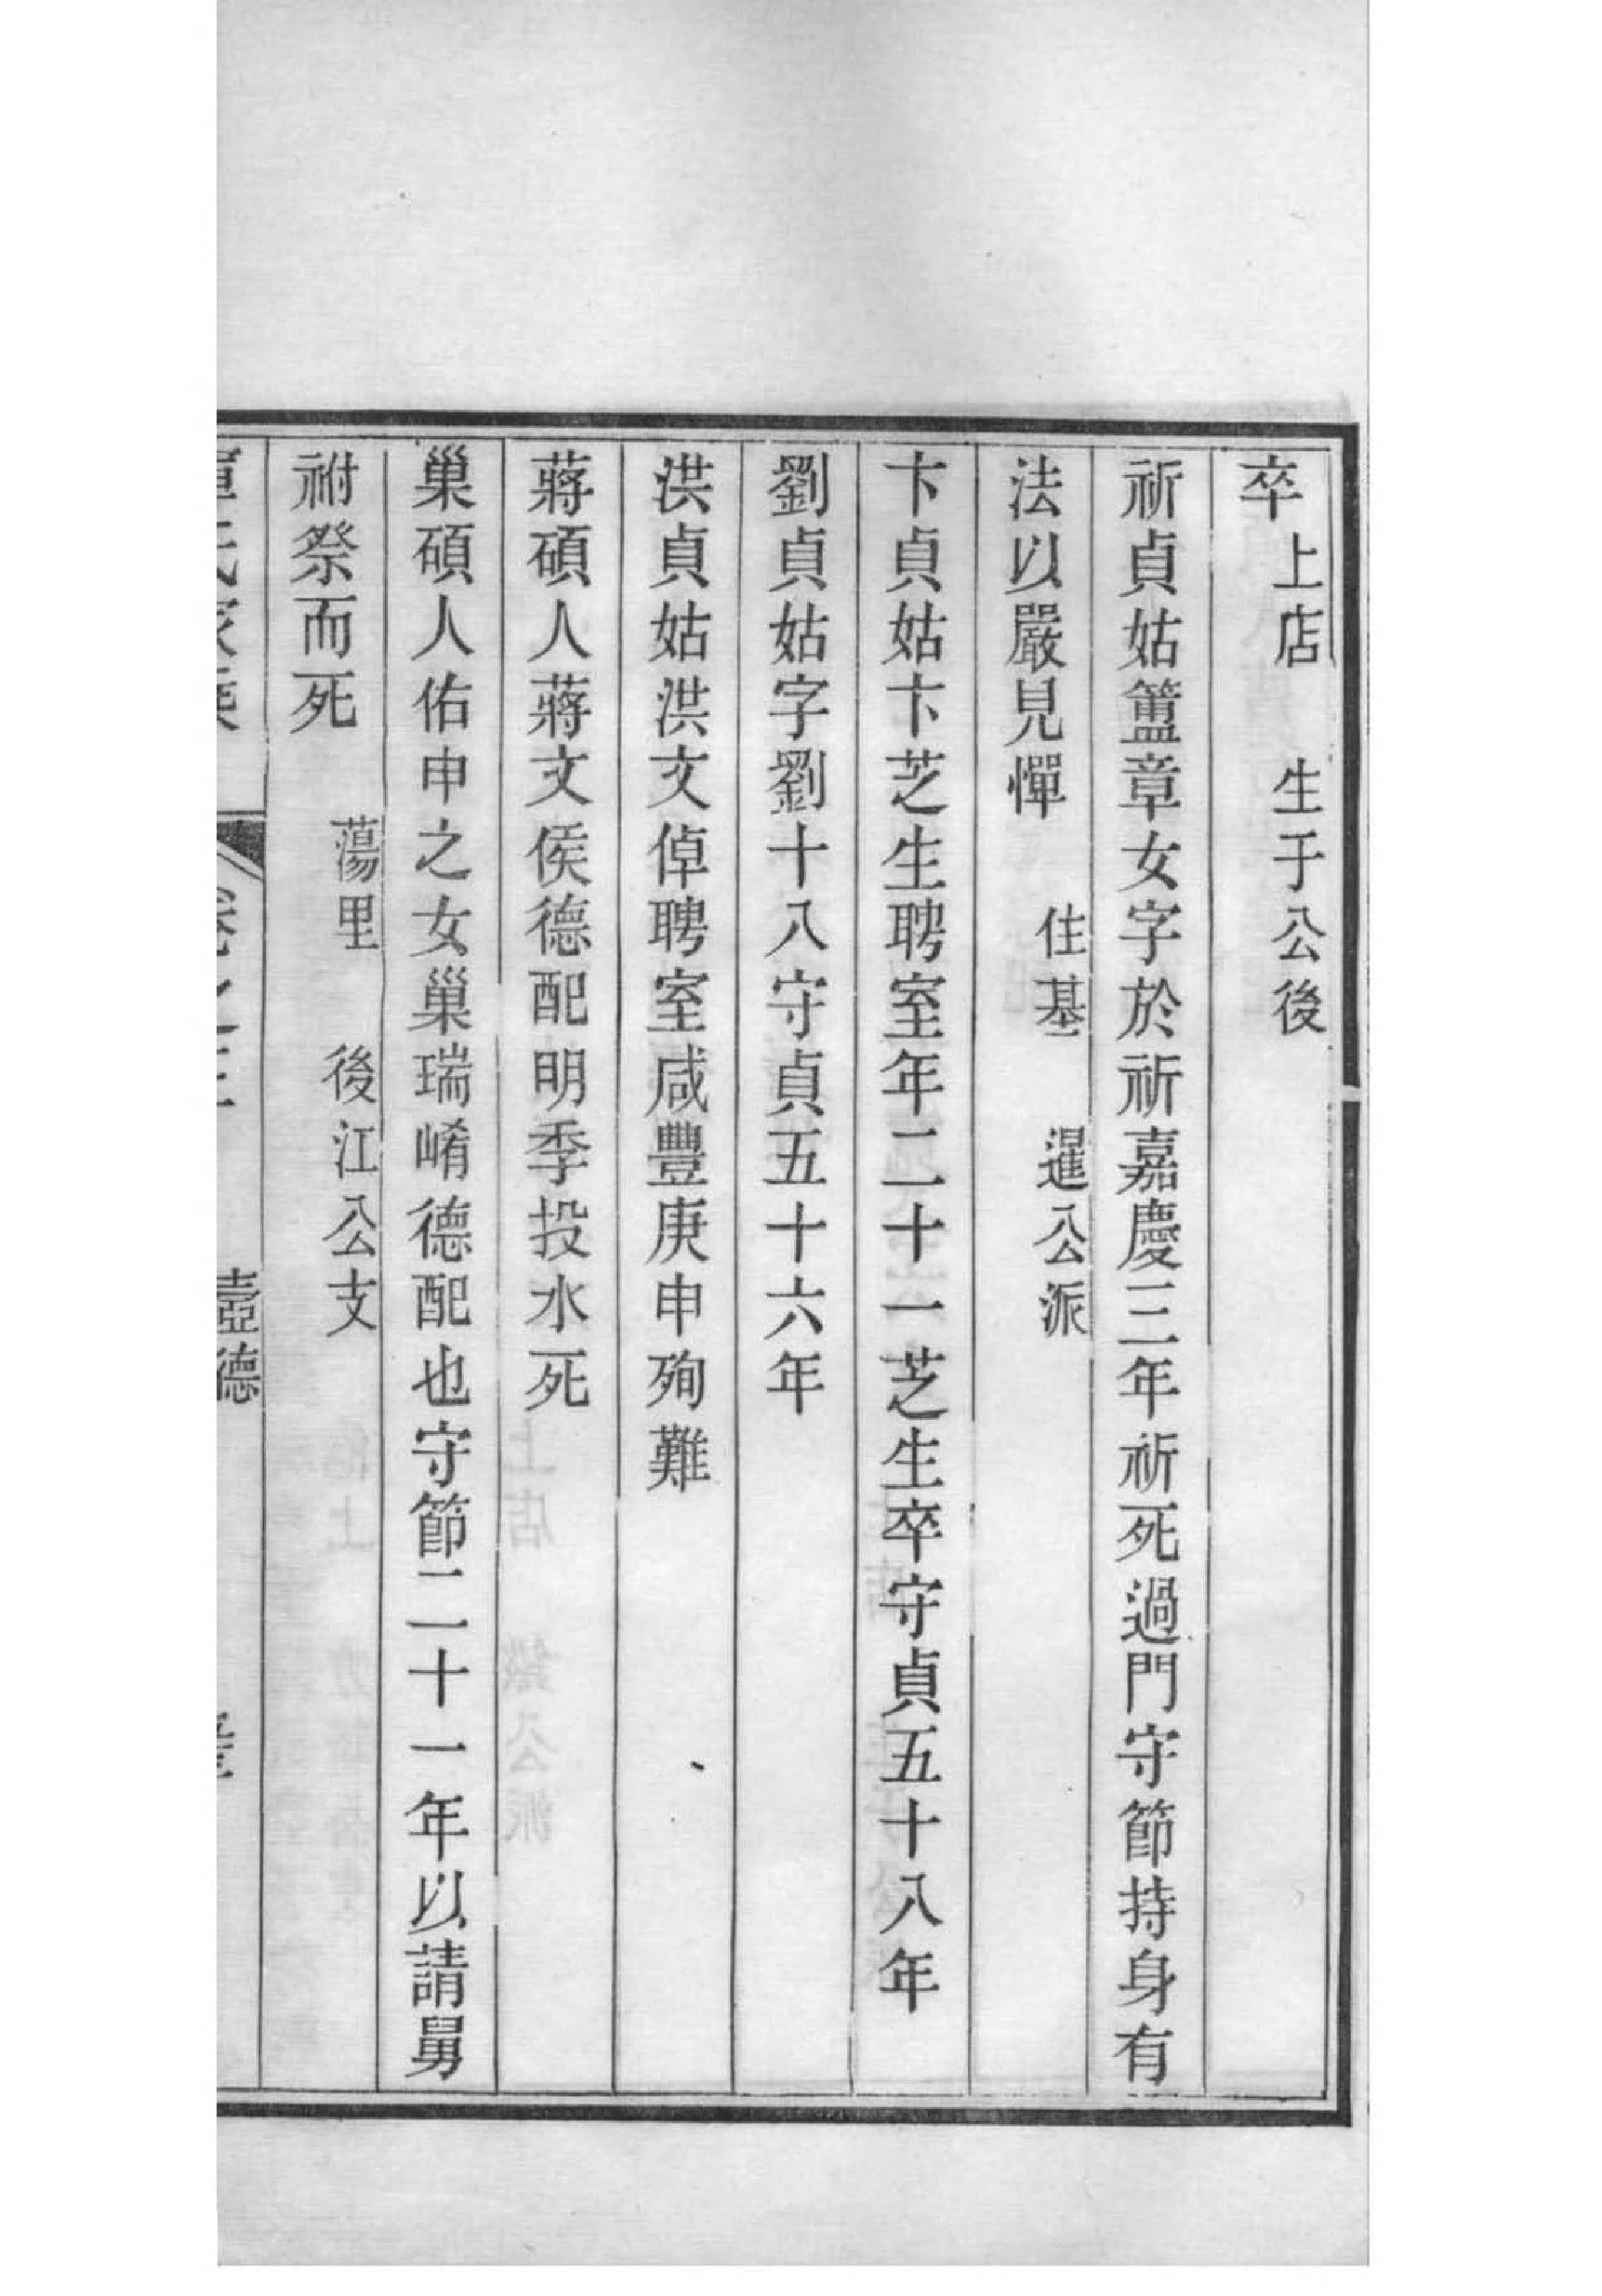 卒 上店 生于公後
祈貞姑簠章女字於祈嘉慶三年祈死過門守節持身有
法以嚴見憚 住基 暹公派
卞貞姑卞芝生聘室年二十一芝生卒守貞五十八年
劉貞姑字劉十八守貞五十六年
洪貞姑洪文倬聘室咸豐庚申殉難
蔣碩人蔣文侯德配明季投水死
巢碩人佑申之女巢瑞崤德配也守節二十一年以請舅
祔祭而死 蕩里 後江公支
壼德